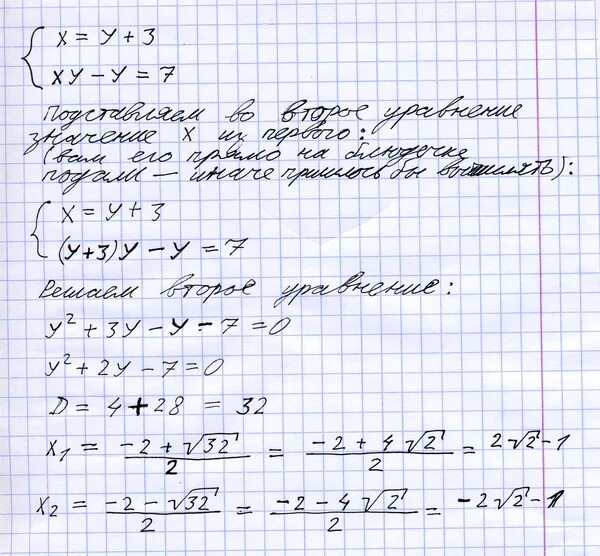 x = y + 3
xy - y = 7
Подставляем во второе уравнение
значение x из первого:
(вам его прямо на блюдечке
подали — иначе пришлось бы вычислять):
x = y + 3
(y+3)y - y = 7
Решаем второе уравнение:
y² + 3y - y - 7 = 0
y² + 2y - 7 = 0
D = 4 + 28 = 32
x₁ = (-2 + √32)/2 = (-2 + 4√2)/2 = 2√2 - 1
x₂ = (-2 - √32)/2 = (-2 - 4√2)/2 = -2√2 - 1